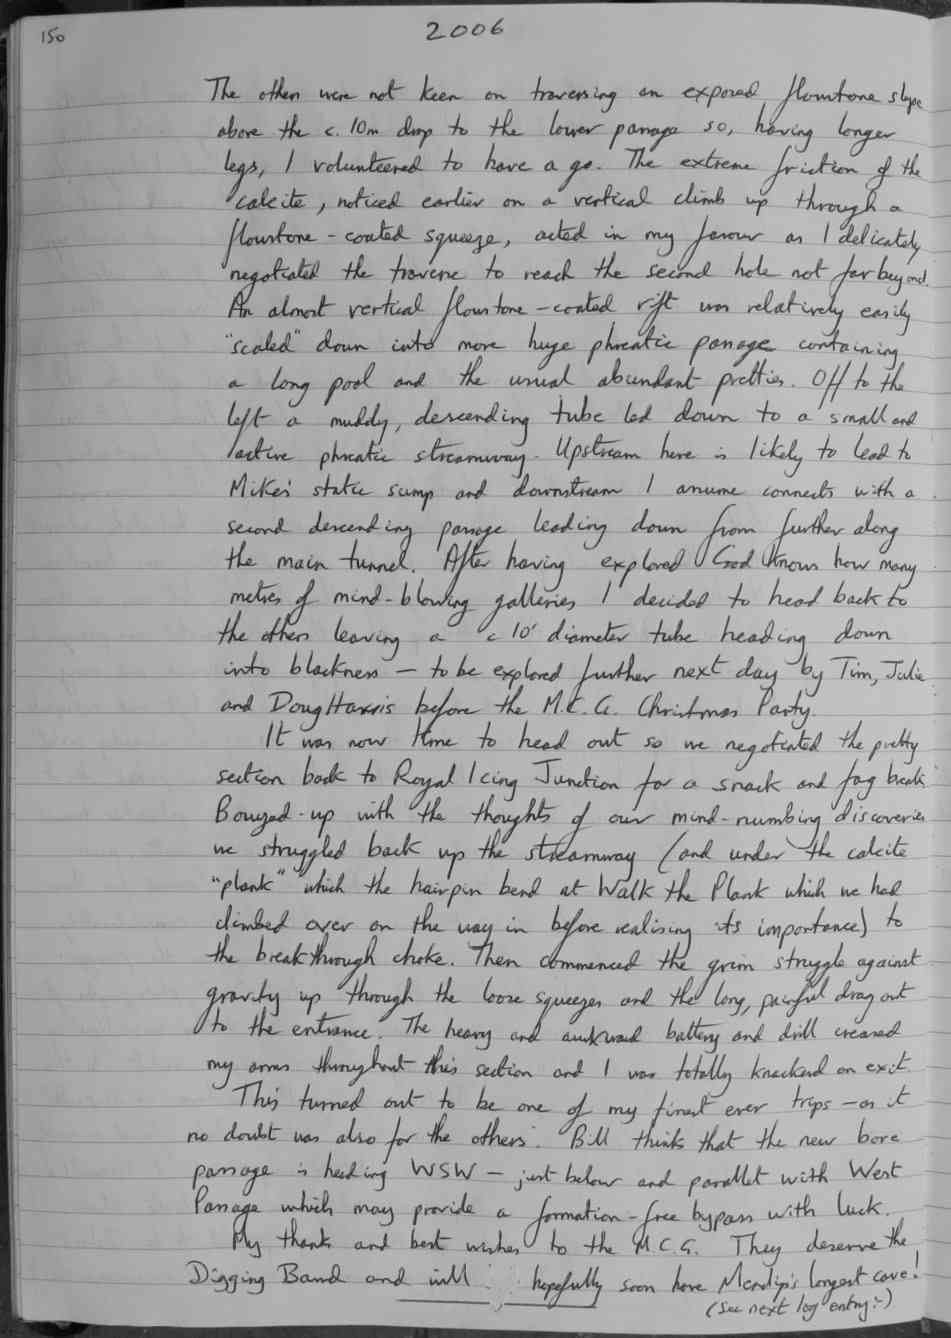 150
2006
The others were not keen on traversing an exposed flowstone slope
above the c. 10m drop to the lower passage so, having longer
legs, I volunteered to have a go. The extreme friction of the
calcite, noticed earlier on a vertical climb up through a
flowstone-coated squeeze, acted in my favour as I delicately
negotiated the traverse to reach the second hole not far beyond.
An almost vertical flowstone-coated rift was relatively easily
"scaled" down into more huge phreatic passage containing
a long pool and the usual abundant pretties. Off to the
left a muddy, descending tube led down to a small and
active phreatic streamway. Upstream here is likely to lead to
Mike's static sump and downstream I assume connects with a
second descending passage leading down from further along
the main tunnel. After having explored God knows how many
metres of mind-blowing galleries I decided to head back to
the others leaving a c 10' diameter tube heading down
into blackness – to be explored further next day by Tim, Julie
and Doug Harris before the M.C.G. Christmas Party.
It was now time to head out so we negotiated the pretty
section back to Royal Icing Junction for a snack and fag break
Bouyed-up with the thoughts of our mind-numbing discoveries
we struggled back up the streamway (and under the calcite
"plank" which the hairpin bend at Walk the Plank which we had
climbed over on the way in before realising its importance) to
the breakthrough choke. Then commenced the grim struggle against
gravity up through the loose squeezes and the long, painful drag out
to the entrance. The heavy and awkward battery and drill creased
my arms throughout this section and I was totally knackered on exit.
This turned out to be one of my finest ever trips – as it
no doubt was also for the others. Bill thinks that the new bore
passage is heading WSW – just below and parallel with West
Passage which may provide a formation-free bypass with luck.
My thanks and best wishes to the M.C.G. They deserve the
Digging Band and will hopefully soon have Mendip's longest cave!
(See next log entry :-)